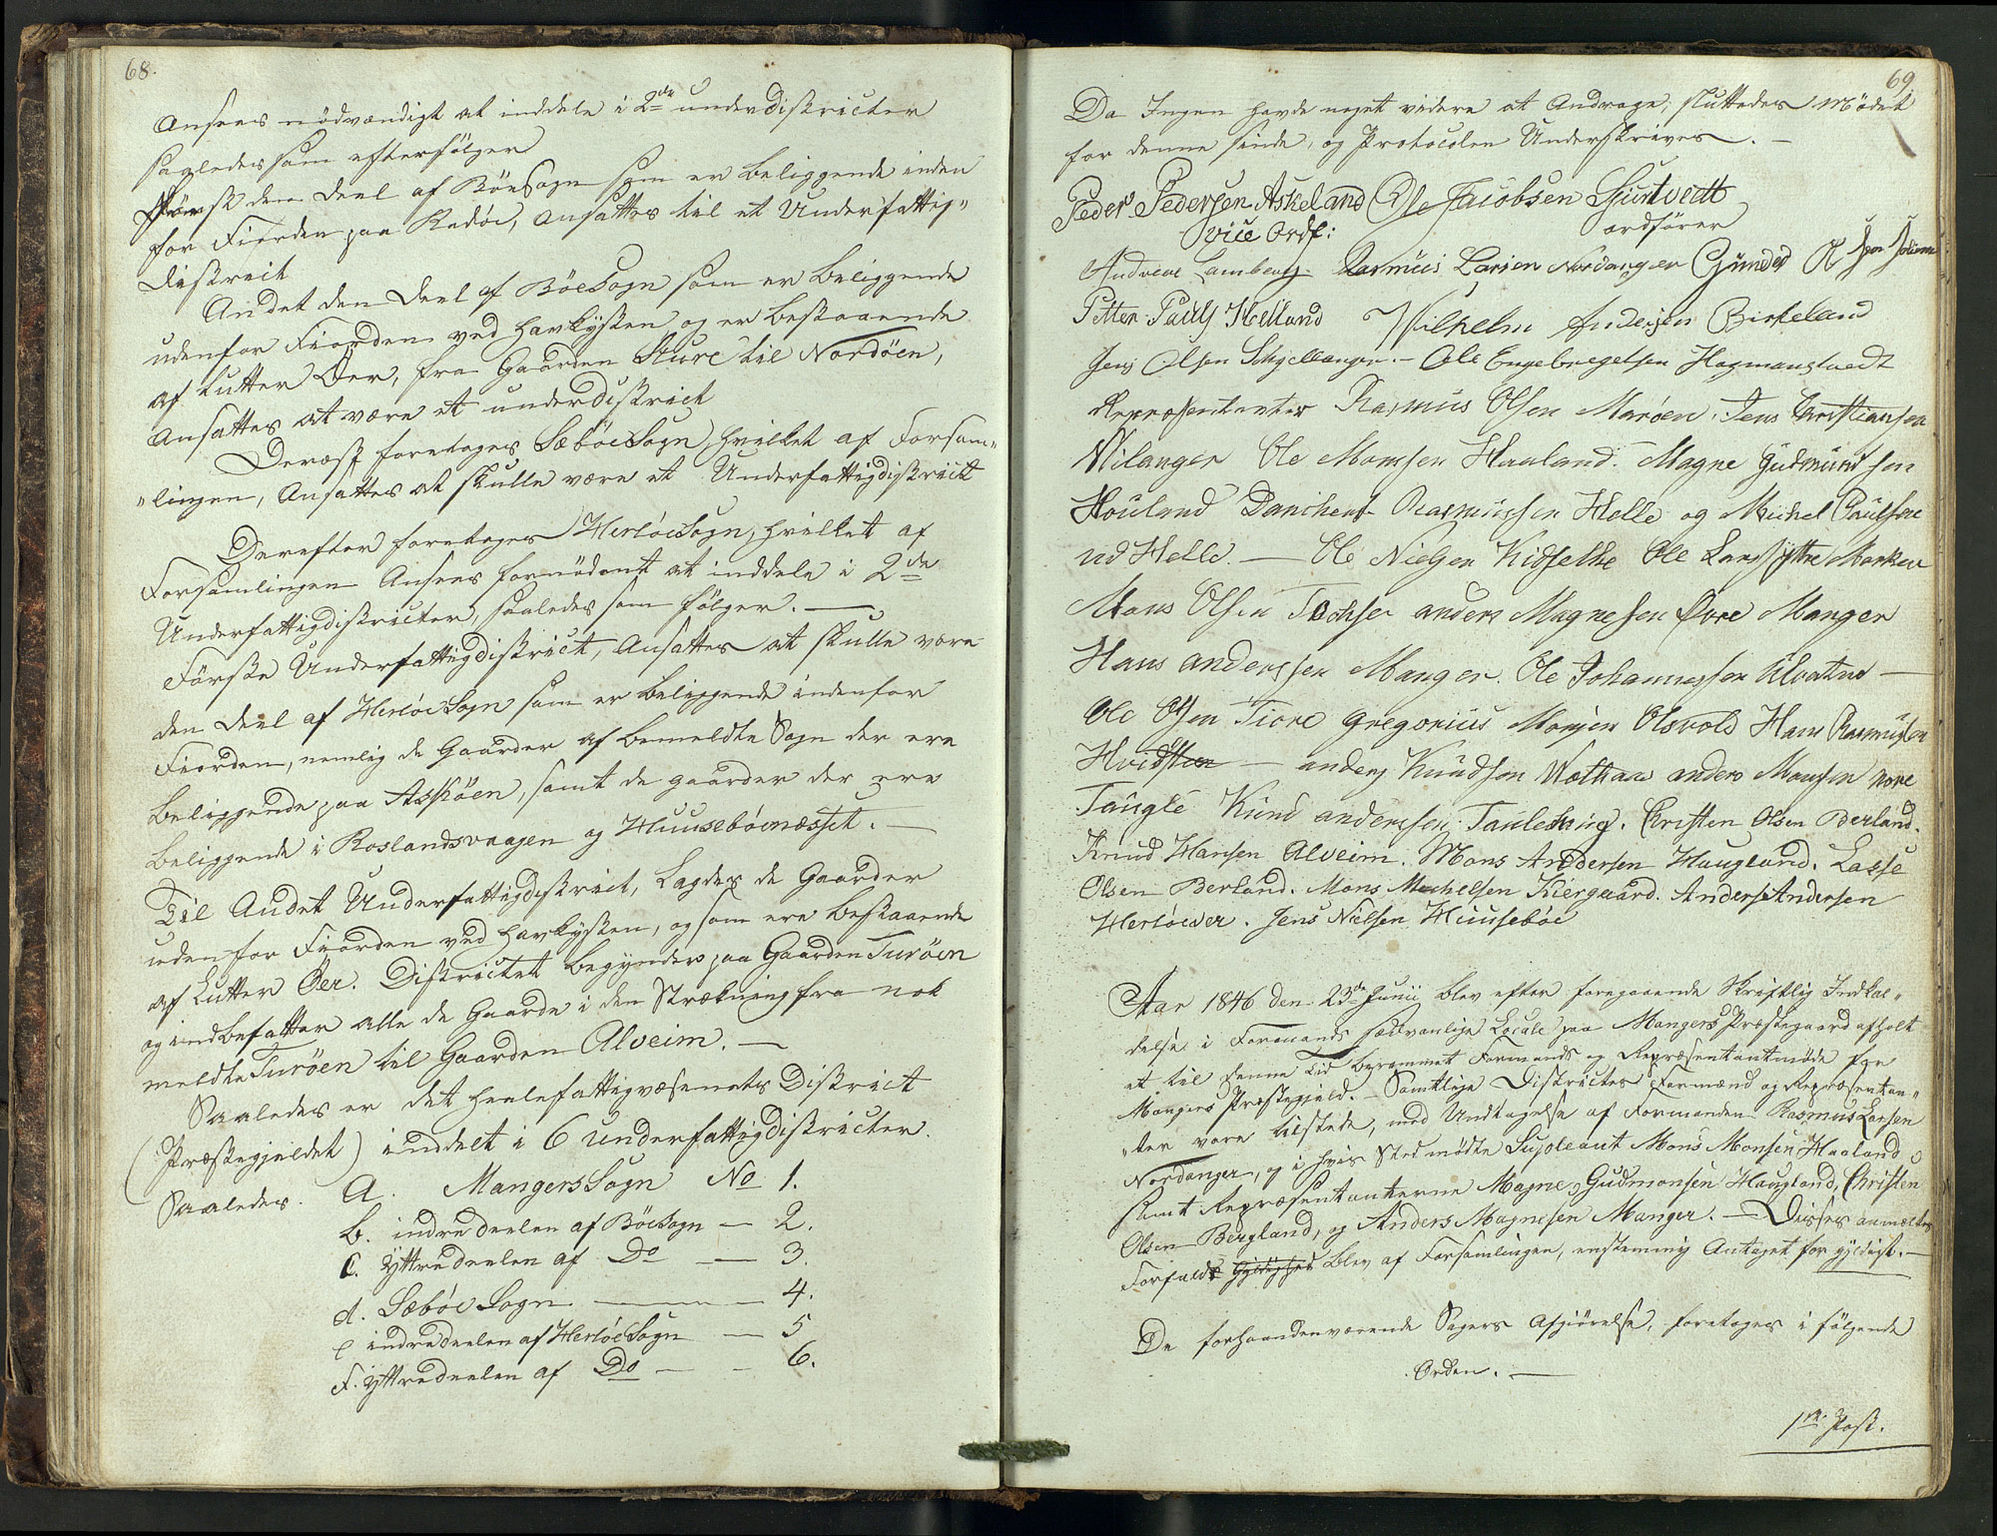 68.
Ansees nødvændigt at inddele i 2de underdistricter
saaledes som efterfølger
Først den Deel af Böe Sogn som er beliggende inden
for Fiorden paa Radöe, ansattes til et Underfattig"
district
Andet den Deel af Böe Sogn som er beliggende
udenfor Fiorden ved Havkysten og er bestaaende
af Lutter Öer, fra Gaarden Sture til Nordöen,
ansattes at være et underdistrict
Dernæst foretoges Sæböe Sogn, hvilket af Forsam"
"lingen, Ansattes at skulle være et Underfattigdistrict
Derefter foretoges Herlöe Sogn, hvilket af
Forsamlingen Ansees fornödent at inddele i 2de
Underfattigdistricter, saaledes som fölger. —
Förste Underfattigdistrict, Ansattes at skulle være
den Deel af Herlöe Sogn som er beliggende indenfor
Fiorden, nemlig de Gaarder af bemeldte Sogn der ere
beliggende paa Askøen, samt de gaarder der ere
beliggende i Roslandsvaagen og Huusebøenæsset. —
Til Andet Underfattigdistrict, Lagdes de Gaarder
udenfor Fiorden ved Havkysten, og som ere bestaaende
af Lutter Öer. Districtet begynder paa Gaarden Turöen
og indbefatter alle de Gaarde i den Strækning fra nok
meldte Turöen til Gaarden Alveim. —
Saaledes er det heele fattigvæsenets District
(Præstegjeldet) inddelt i 6 underfattigdistricter.
Saaledes. A. Mangers Sogn No 1.
b. indre deelen af Böe Sogn — 2.
C. yttre deelen af Do — 3.
d. Sæböe Sogn — 4.
e indre deelen af Herlöe Sogn — 5
F. yttre deelen af Do — 6.
69.
Da Ingen havde noget videre at Andrage, sluttedes Mödet
for denne sinde, og Protocolen Underskrives. —
Peder Pedersen Askeland Ole Jacobsen Giertvedt
vice Ordf: ordförer
Andreas Lamberg. Rasmus Larsen Nordanger Gunder
Petter Pauls Helland Wilhelm Andersen Birkeland
Jens Olsen Schjellanger. — Ole Engebregtsen Hagmanstvedt
Repræsentanter Rasmus Olsen Maröen. Jens Christiansen
Wilanger Ole Monsen Haaland. Magne Gudmundsen
Houland Rasmussen Helle og Michel Paulsen
nd Helle. — Ole Nielsen Kidselke Ole Lars yttre Marken
Mons Olsen anders Magnesen Øvre Manger
Hans anderssen Manger. Ole Johannessen —
Ole Olsen Tiore gregorius Monsen Olsvold Hans Rasmussen
Hvidsteen — anders Knudsen anders Monsen nore
Taugle Knud anderssen. Christen Olsen Berland.
Knud Hansen Alveim. Mons Andersen Haugland. Lasse
Olsen Berland. Mons Michelsen Kiergaard. Anders Andersen
Herlöevær. Jens Nielsen Huusebøe
Aar 1846 den 23de Junii blev efter foregaaende Skriftlig Indkal"
delse i Formands sædvanlige Locale paa Mangers Præstegaard afholt
et til denne Tid berammet Formands og Repræsentantmøde for
Mangers Præstegjeld. — Samtlige Districtes Formænd og Repræsentan"
"ter vare tilstede, med Undtagelse af Formanden Rasmus Larsen
Nordanger, og i hvis Sted mødte Supleant Mons Monsen Haaland
samt Repræsentanterne Magne Gudmonsen Haugland, Christen
Olsen Bergland, og Anders Magnesen Manger. — Disses anmeldte
Forfald blev af Forsamlingen, enstemmig Antaget for gyldigt. —
De forhaandenværende Sagers Afgiörelse, foretoges i fölgende
Orden. —
1ste Post.